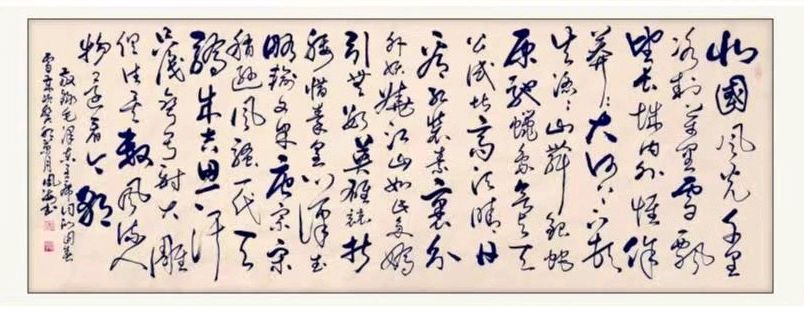 北國風光千里
冰封萬里雪飄
望長城內外惟餘
莽莽大河上下頓
失滔滔山舞銀蛇
原馳蠟象欲與天
公試比高須晴日
看紅裝素裹分
外妖嬈江山如此多嬌
引無數英雄競折
腰惜秦皇漢武
略輸文采唐宗宋
祖稍遜風騷一代天
驕成吉思汗
只識彎弓射大雕
俱往矣數風流人
物還看今朝
敬錄毛澤東主席詞沁園春
雪歲次癸卯月書